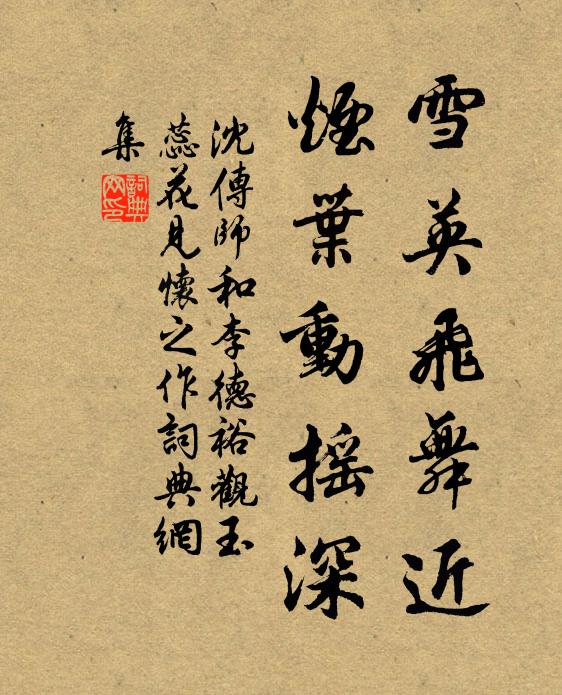 雪英飛舞近
煙葉動搖深
沈傳師和李德裕觀玉
蕊花見懷之作詞典網
集
詞典網印